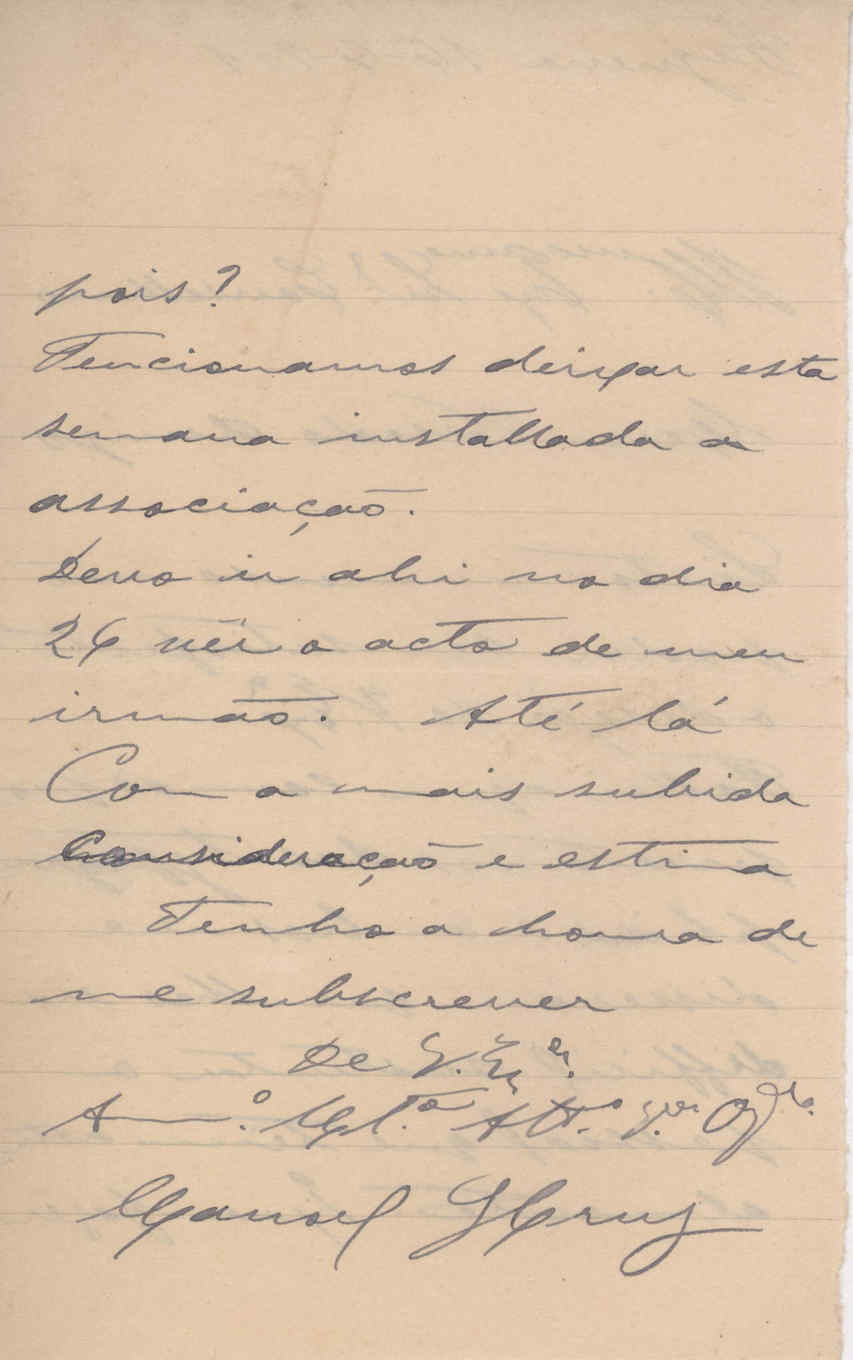 pois?
Tencionamos deixar esta
semana installada a
associação.
Devo ir ahi no dia
26 vêr o acto de meu
irmão. Até lá
Com a mais subida
Consideração e estima
Tenho a honra de
me subscrever
De V. Ex.ª
Am.º Att.º
Manoel Cruz